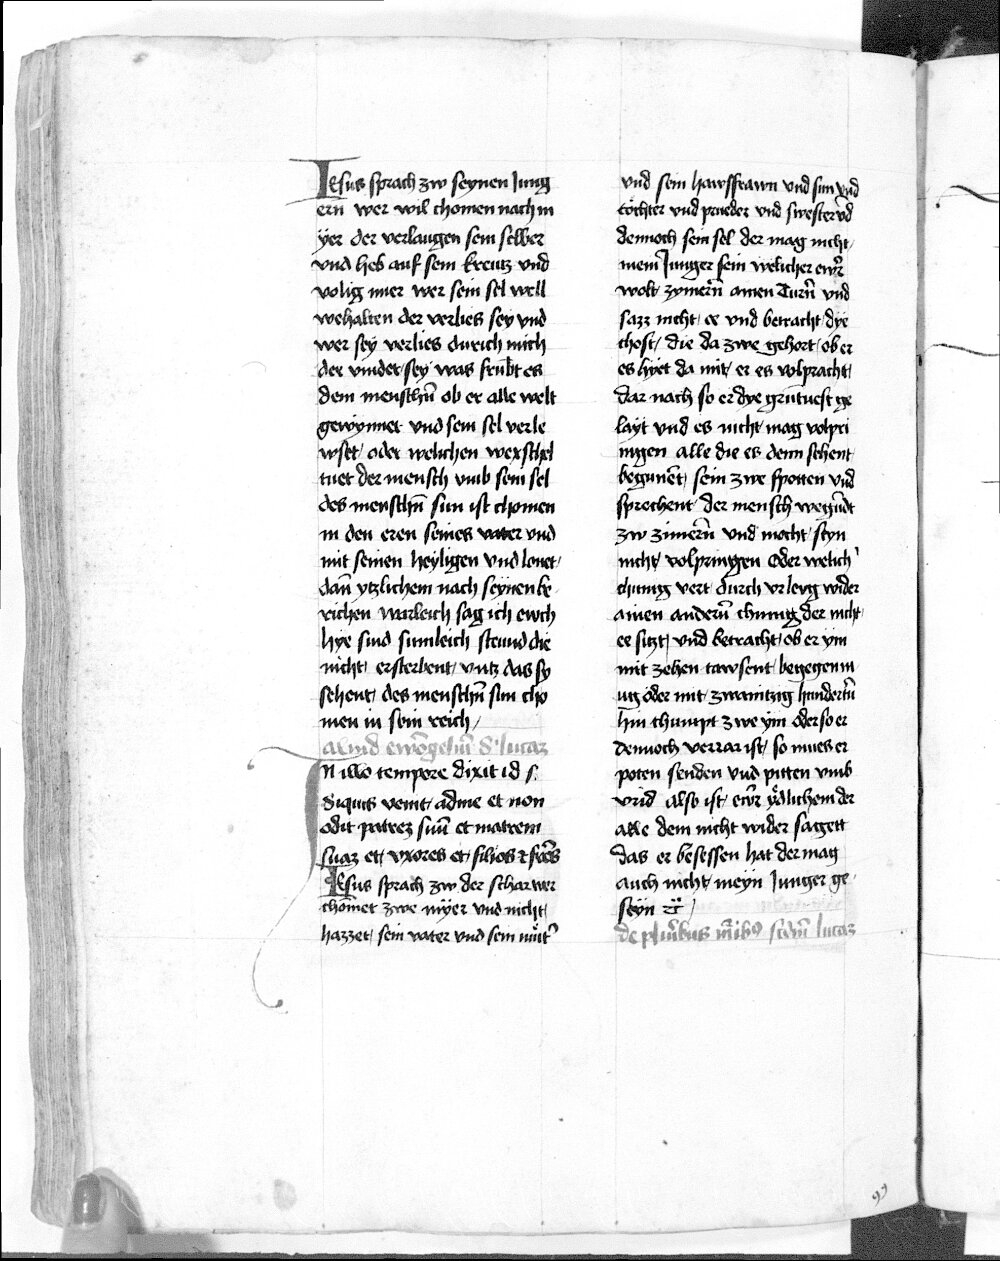 Jesus sprach zw seynen Jung
ern wer wil chomen nach m
ÿer der verlaugen sein selber
vnd heb auf sein kreutz vnd
volig mier wer sein sel well
wehalten der verlies sey vnd
wer seÿ verlies durich mich
der vindet sey was frūbt es
dem menschn̄ ob er alle welt
gewÿnnet vnd sein sel verle
wset oder welichen wexschel
tuet der mensch vmb sein sel
des menschn̄ sun ist chomen
in den eren seines vater vnd
mit seinen heyligen vnd lonet
dan̄ ytzlichem nach seÿnen be
richen warleich sag ich ewch
hye sind sumleich stennd die
nicht ersterbent vntz das sy
sehent des menschn̄ sun cho
men in sein reich
aliud ewāgeliū S. lucas
N illo tempore dixit id s.
Siquis venit ad me et non
odit patrez suū et matrem
suaz et vxores et filios et frēs
Jesus sprach zw der schar wer
chōmet zwe mÿer vnd nicht
hazzet sein vater vnd sein mūt
vnd sein hawsfrawn vnd sun vnd
tochter vnd prueder vnd swester vn̄d
dennoch sein sel der mag nicht
mein Junger sein welicher ewr̄
wolt zymern̄ ainen Turn̄ vnd
sazz nicht ee vnd betracht dye
chost die da zwe gehort ob er
es hÿet da mit er es volpracht
dar nach so er dye gruntuest ge
layt vnd es nicht mag volpri
ngen alle die es denn sehent
begunēt sein zwe spotten vnd
sprechent der mensch wegūdt
zw zimern̄ vnd mocht seyn
nicht volpringen Oder welich
chunig vert durch vrleug wider
ainen andern̄ chunig der nicht
ee sitzt vnd betracht ob er ym
mit zehen tawsent begegen m
ug oder mit zwaintzig hundertn̄
hin chumpt zwe ym oder so er
dennoch verrar ist so mues er
poten senden vnd pitten vmb
vrid also ist ewr̄ ydlichem der
alle dem nicht wider sagett
das er besessen hat der mag
auch nicht meyn Junger ge
seyn
de plurībus mr̄ibꝫ scdm̄ lucaz
99